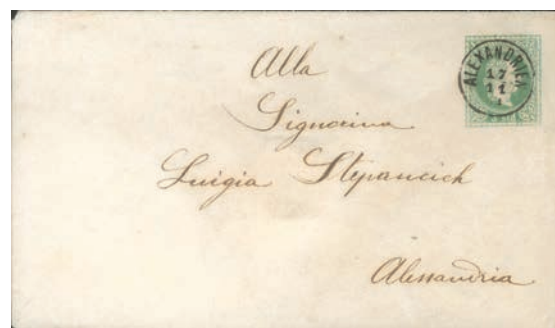 ALEXANDRIEN
17
11
Alla
Signorina
Luigia Stepancich
Alessandria